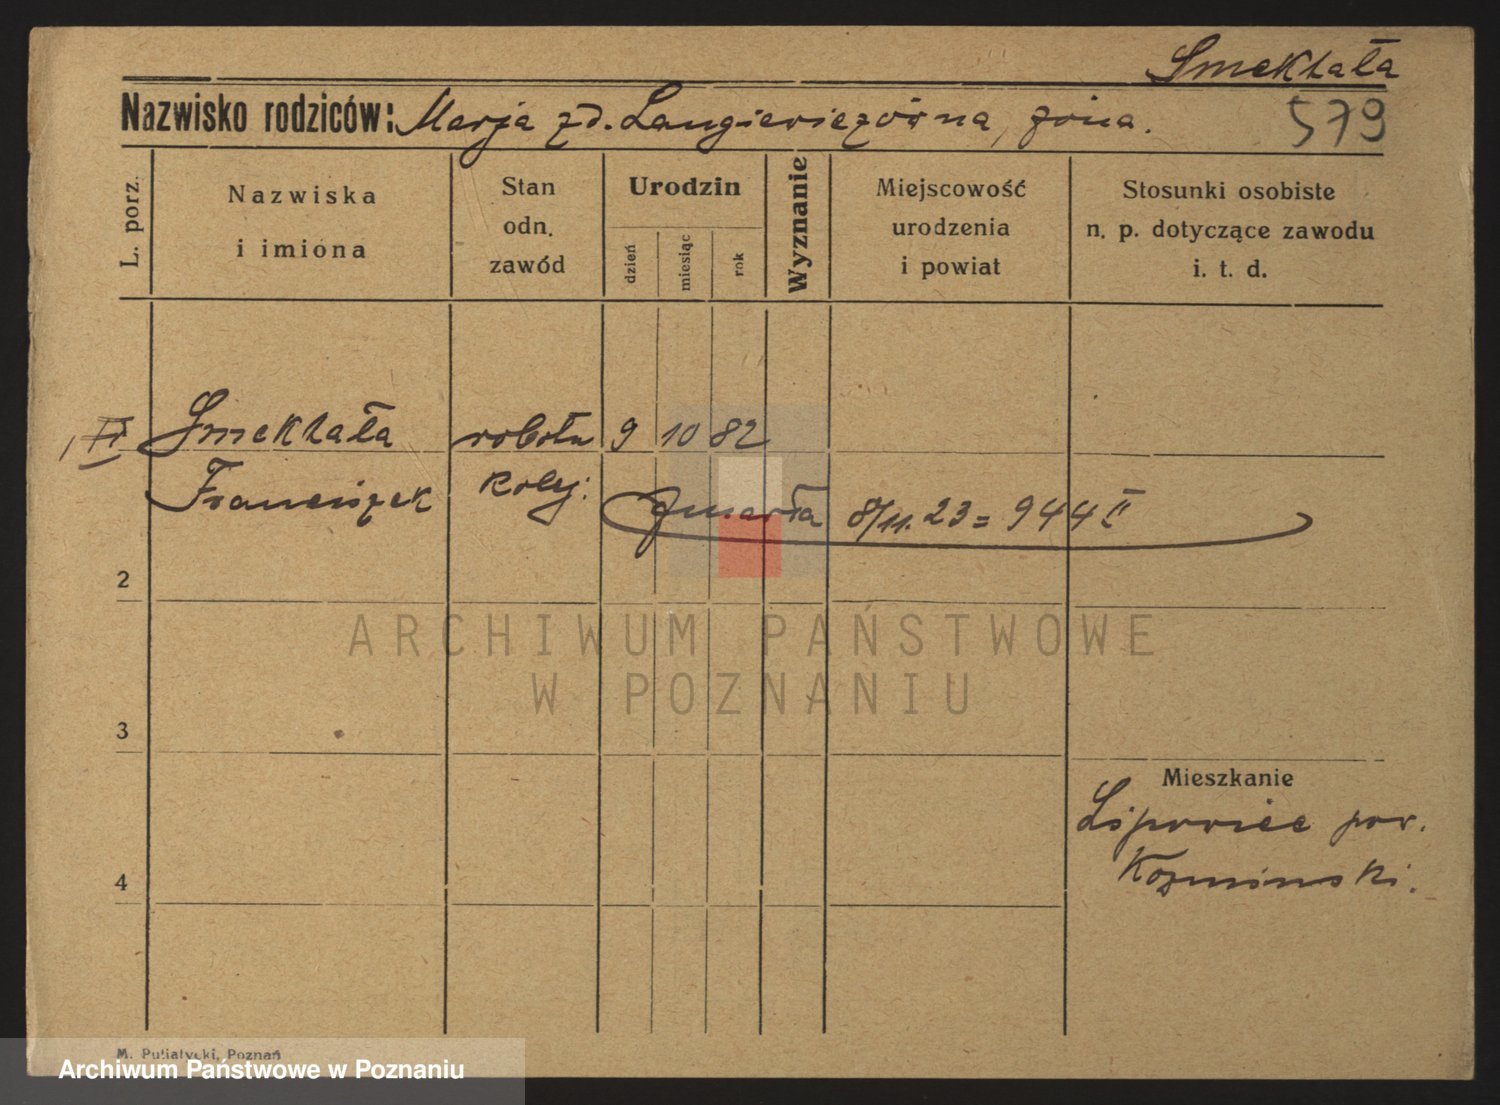 Smektała
Nazwisko rodziców: Marja zd. Langiewiczówna, żona.
579
L. porz.
Nazwiska
i imiona
Stan
odn.
zawód
Urodzin
dzień
miesiąc
rok
Wyznanie
Miejscowość
urodzenia
i powiat
Stosunki osobiste
n. p. dotyczące zawodu
i. t. d.
Smektała robotn 9 10 82
Franciszek kolej:
zmarła 8/11. 23 = 944 II
2
ARCHIWUM PAŃSTWOWE
W POZNANIU
3
Mieszkanie
Lipowiec pow.
Kozminski.
4
M. Putiatycki, Poznań
Archiwum Państwowe w Poznaniu